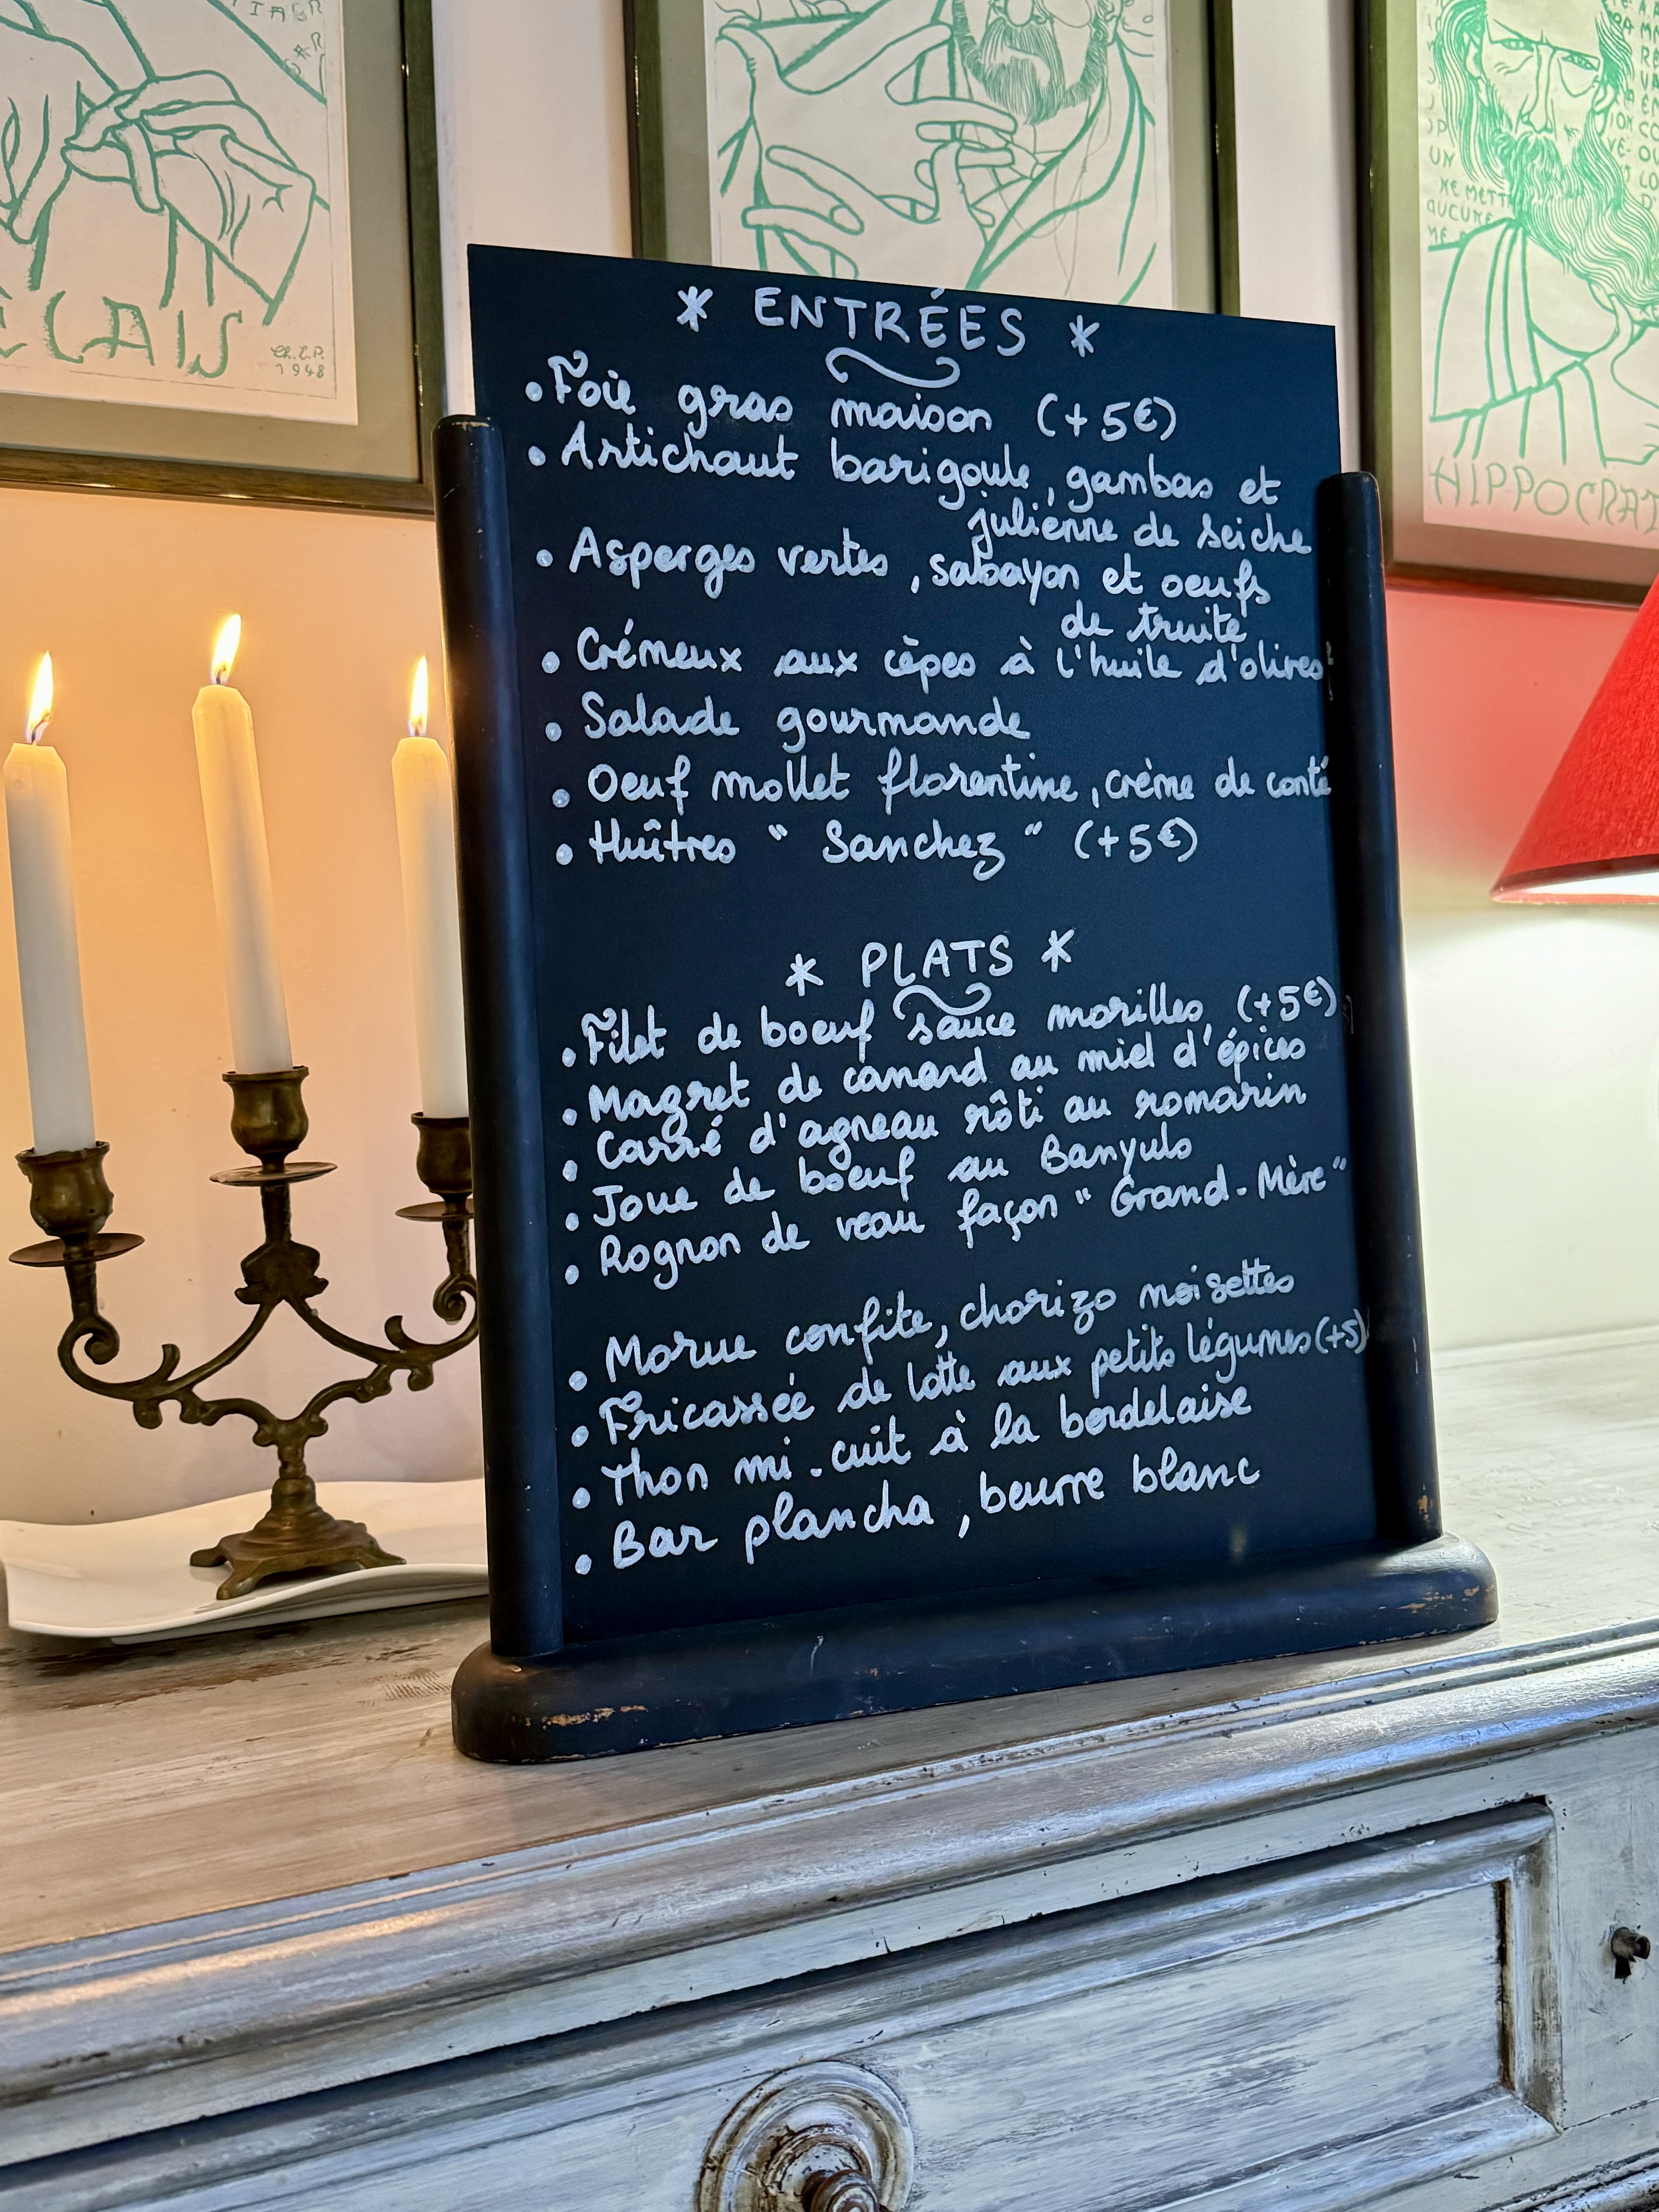 * ENTRÉES *
• Foie gras maison (+5€)
• Artichaut barigoule, gambas et
julienne de seiche
• Asperges vertes, sabayon et oeufs
de truite
• Crémeux aux cèpes à l'huile d'olives
• Salade gourmande
• Oeuf mollet florentine, crème de conté
• Huîtres " Sanchez " (+5€)
* PLATS *
• Filet de boeuf sauce morilles (+5€)
• Magret de canard au miel d'épices
• Carré d'agneau rôti au romarin
• Joue de boeuf au Banyuls
• Rognon de veau façon " Grand-Mère"
• Morue confite, chorizo noisettes
• Fricassée de lotte aux petits légumes (+5)
• Thon mi-cuit à la bordelaise
• Bar plancha, beurre blanc
ELAIS
Ch.L.P.
1948
UN
NE METT
AUCUNE
HIPPOCRAT